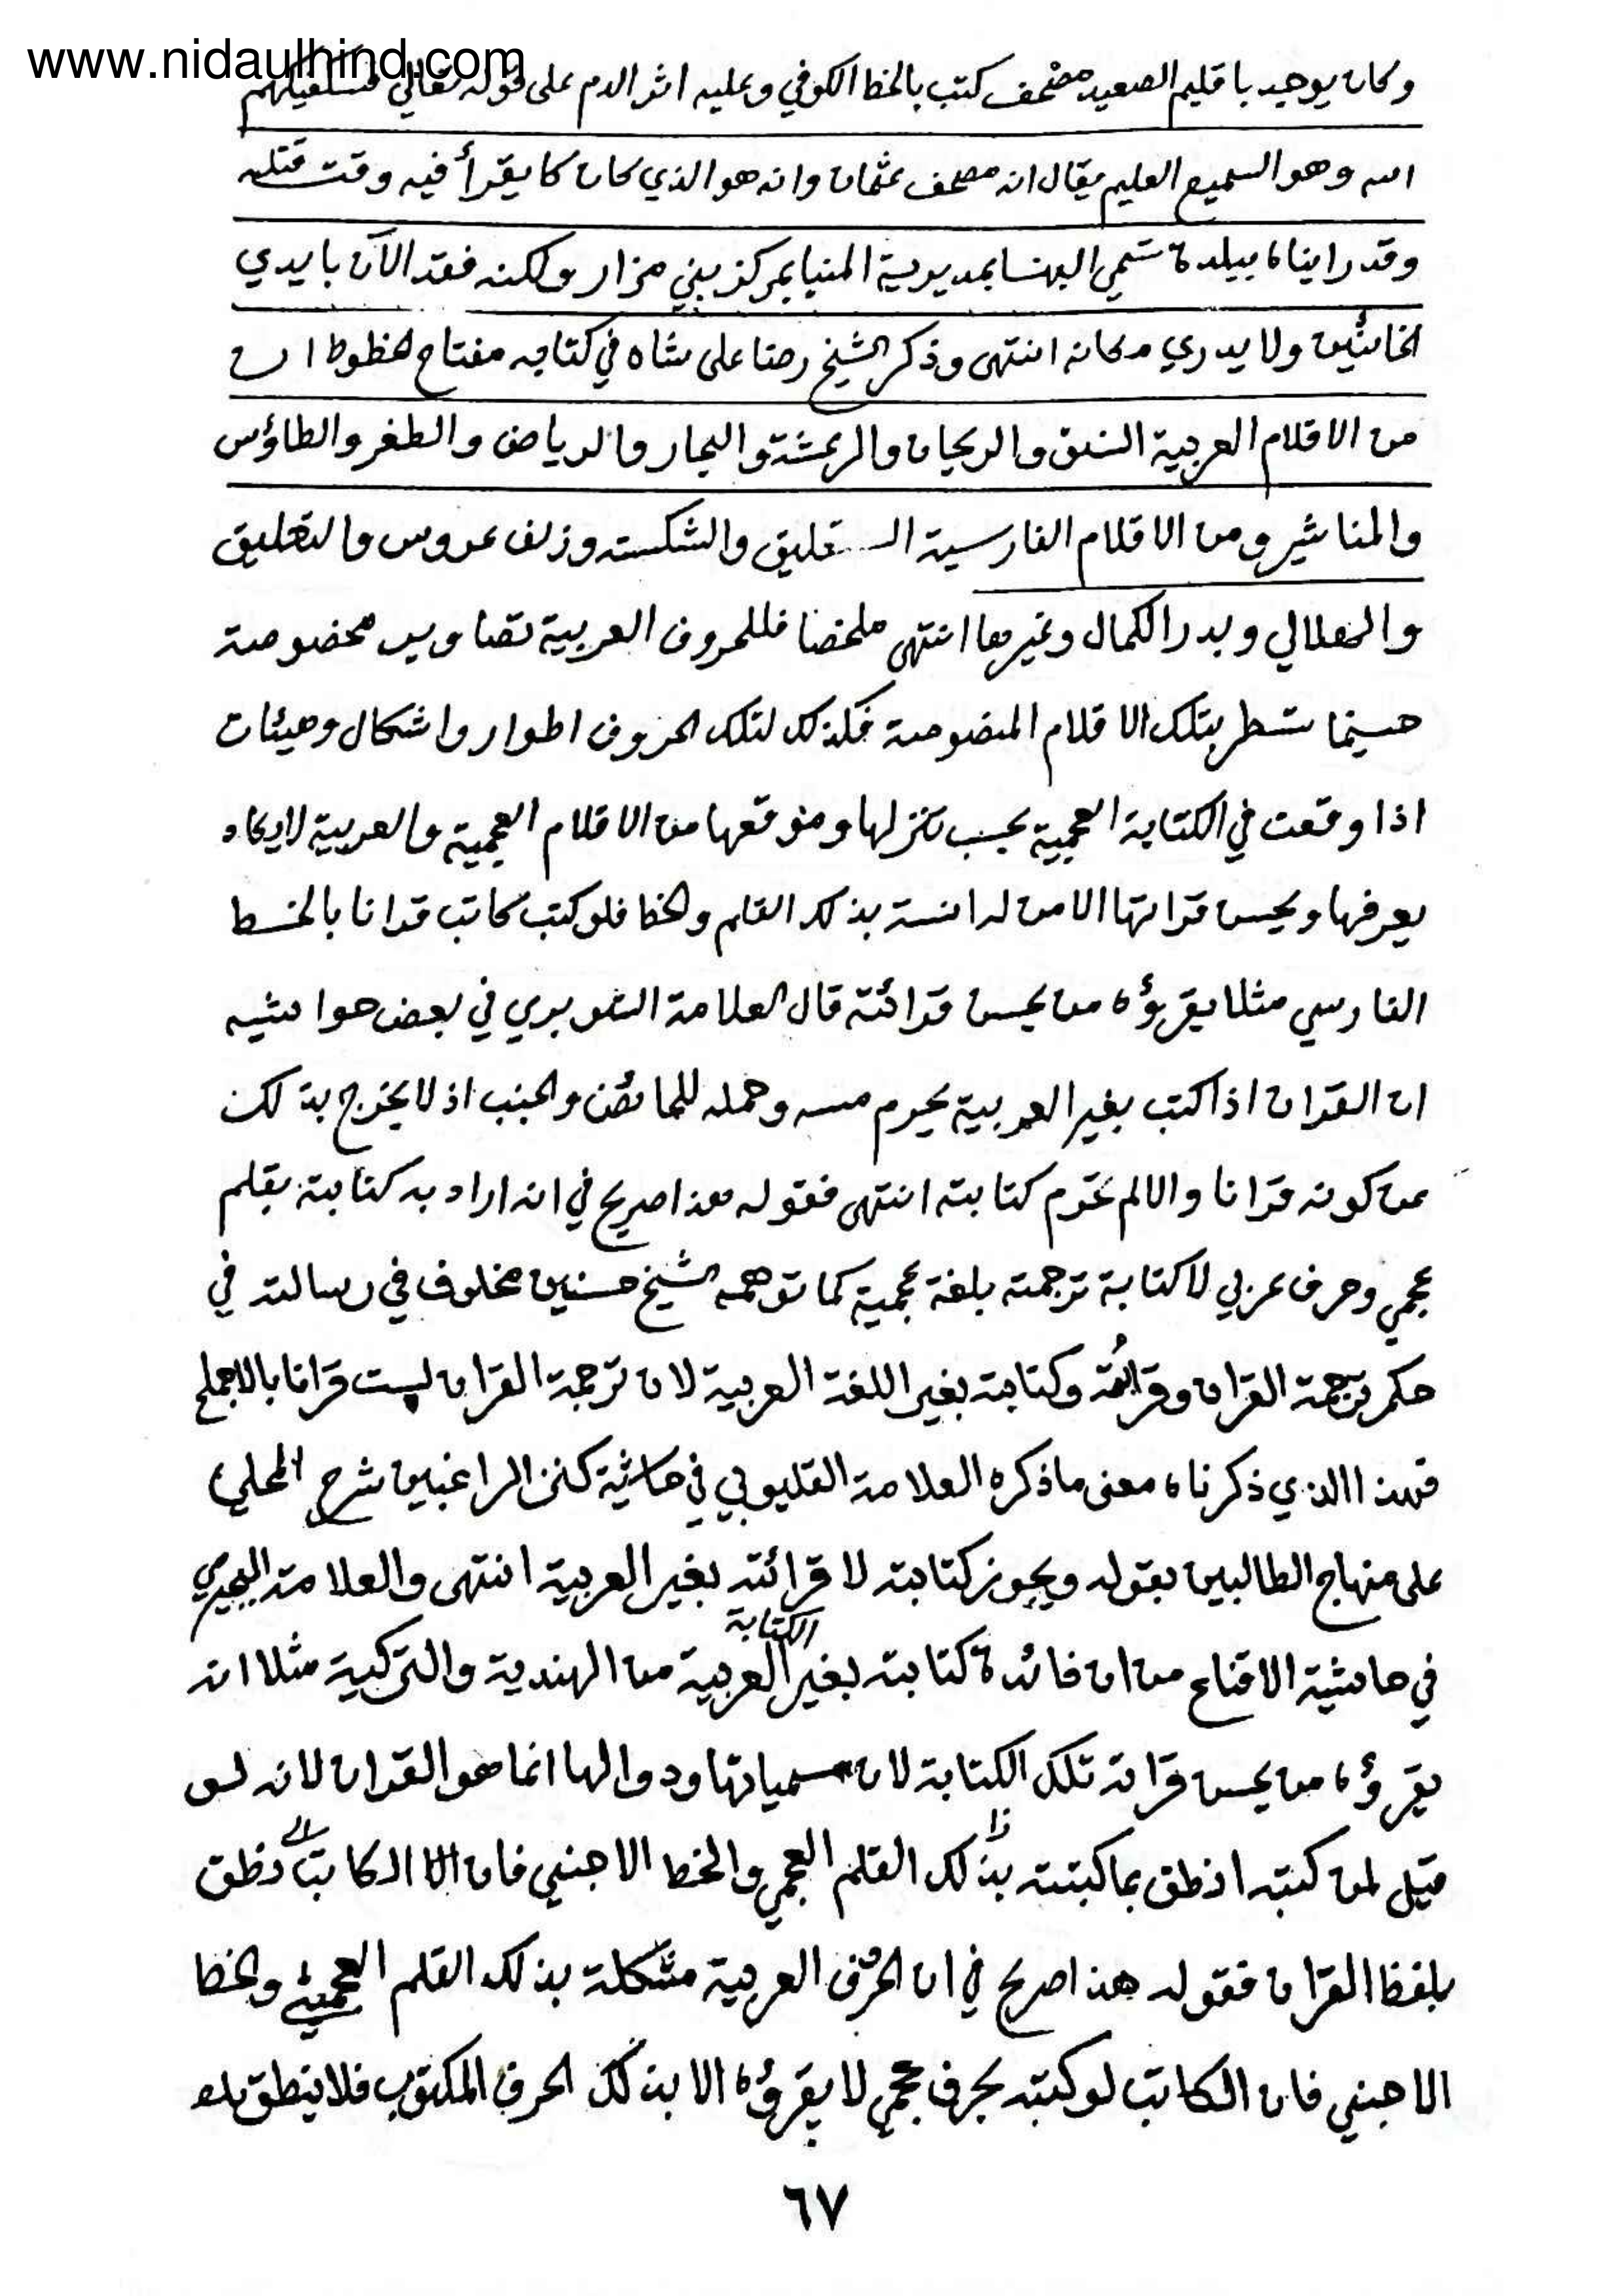 www.nidaulhind.com
وكان يوجد باقليم الصعيد مصحف كتب بالخط الكوفي وعليه اثر الدم على قوله تعالي فسيكفيكهم
الله وهو السميع العليم يقال انه مصحف عثمان وانه هو الذي كان كا يقرأ فيه وقت قتله
وقد رايناه ببلدة تسمي البهنسا بمديرية المنيا بمركز بني مزار ولكنه فقد الآن بايدي
الخائنين ولا يدري مكانه انتهى وذكر الشيخ رضا على شاه في كتابه مفتاح الخطوط ان
من الاقلام العربية النسق والريحان والرعشة والبحار والرياض والطغر والطاؤس
والمناشير ومن الاقلام الفارسية الستقليق والشكسته وزلف عروس والتعليق
والهلالي وبدر الكمال وغيرها انتهى ملخصا فللحروف العربية تصاوير مخصوصة
حينما تسطر بتلك الاقلام المخصوصة فكذلك لتلك الحروف اطوار واشكال وهيئات
اذا وقعت في الكتابة العجمية بحسب تنزلها وموقعها من الاقلام العجمية والعربية لايكاد
يعرفها ويحسن قراتها الا من له انسة بذلك القلم والخط فلو كتب كاتب قرانا بالخط
الفارسي مثلا يقرؤه من يحسن قرائته قال العلامة الشوبري في بعض حواشيه
ان القران اذا كتب بغير العربية يحرم مسه وحمله للحائض والجنب اذ لا يخرج بذلك
عن كونه قرانا والا لم تحرم كتابته انتهى فقوله هذا صريح في انه اراد به كتابته بقلم
عجمي وحرف عربي لا كتابة ترجمته بلغة عجمية كما توهمه الشيخ حسنين مخلوف في رسالته في
حكم ترجمة القران وقرائته وكتابته بغير اللغة العربية لان ترجمة القران ليست قرانا بالاجماع
فهذا الذي ذكرناه معنى ما ذكره العلامة القليوبي في حاشية كنز الراغبين شرح المحلي
على منهاج الطالبين بقوله ويجوز كتابته لا قرائته بغير العربية انتهى والعلامة البجيرمي
في حاشية الاقناع من ان فائدة كتابته بغير الكتابة العربية من الهندية والتركية مثلا انه
يقرؤه من يحسن قراته تلك الكتابة لان مسمياتها ودوالها انما هو القران لانه لو
قيل لمن كتبه انطق بما كتبته بذلك القلم العجمي والخط الاجنبي فان الكاتب نطق
بلفظ القران فقوله هذا صريح في ان الحرف العربية مشكلة بذلك القلم العجمي والخط
الاجنبي فان الكاتب لو كتبه بحرف عجمي لا يقرؤه الا بذلك الحرف المكتوب فلا ينطق بلا
٦٧